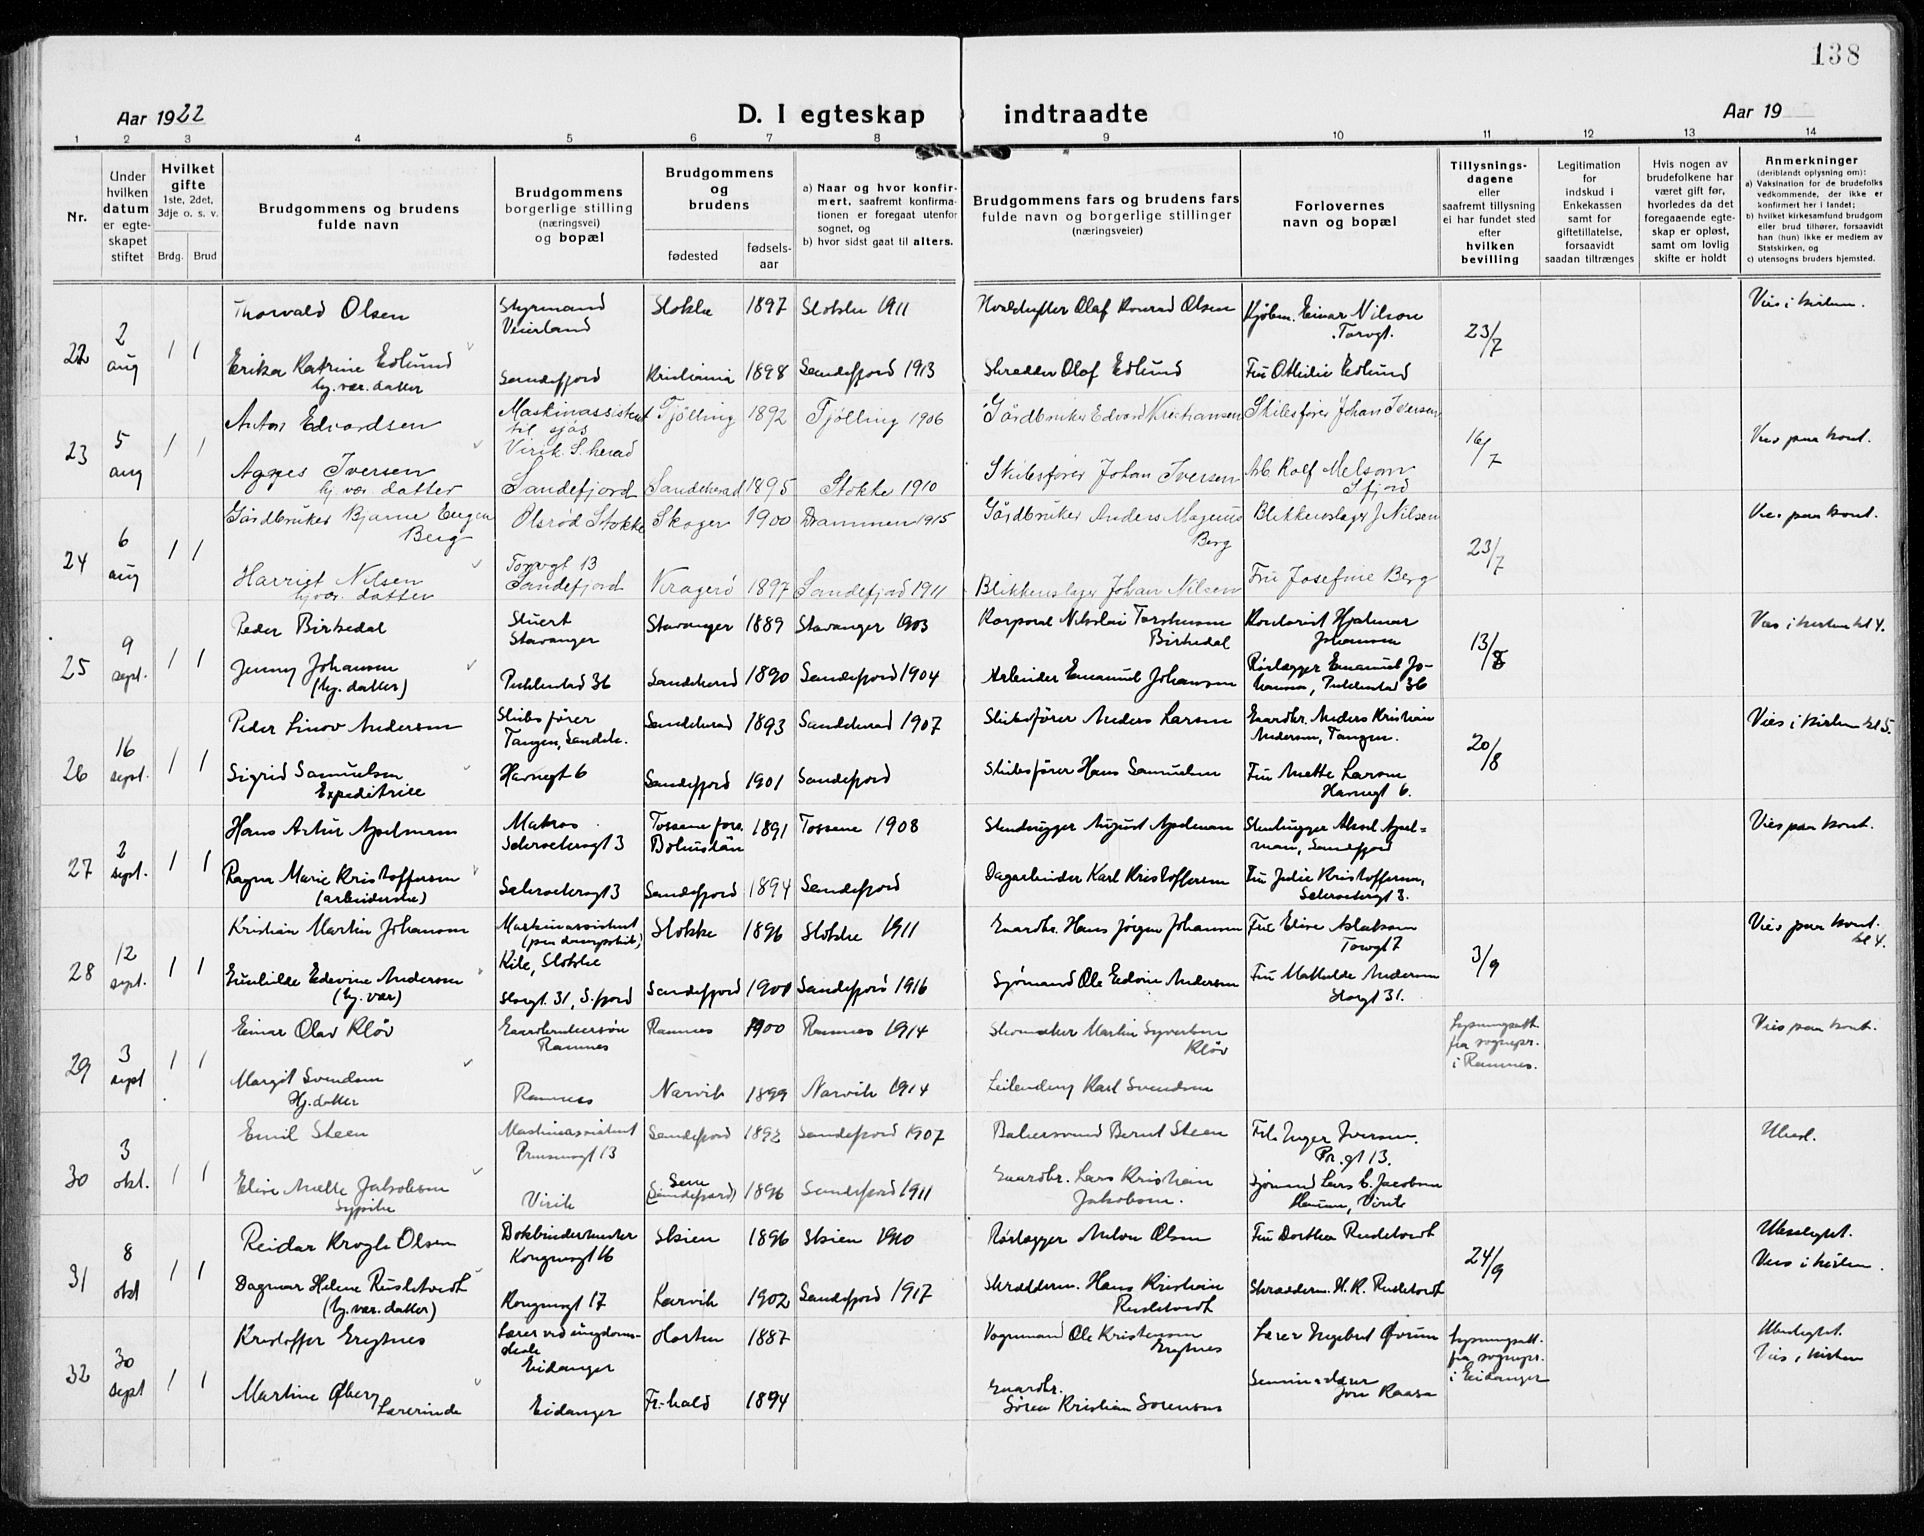 138
Aar 1922
D. I egteskap indtraadte
Aar 19
1 2 3 4 5 6 7 8 9 10 11 12 13 14
Nr.
Under
hvilken
datum
er egte-
skapet
stiftet
Hvilket
gifte
1ste, 2det,
3dje o. s. v.
Brdg. Brud
Brudgommens og brudens
fulde navn
Brudgommens
borgerlige stilling
(næringsvei)
og bopæl
Brudgommens
og
brudens
fødested
fødsels-
aar
a) Naar og hvor konfir-
mert, saafremt konfirma-
tionen er foregaat utenfor
sognet, og
b) hvor sidst gaat til alters.
Brudgommens fars og brudens fars
fulde navn og borgerlige stillinger
(næringsveier)
Forlovernes
navn og bopæl
Tillysnings-
dagene
eller
saafremt tillysning
ei har fundet sted
efter
hvilken
bevilling
Legitimation
for
indskud i
Enkekassen
samt for
giftetillatelse,
forsaavidt
saadan tiltrænges
Hvis nogen av
brudefolkene har
været gift før,
hvorledes da det
foregaaende egte-
skap er opløst,
samt om lovlig
skifte er holdt
Anmerkninger
(deriblandt oplysning om):
a) Vaksination for de brudefolks
vedkommende, der ikke er
konfirmert her i landet;
b) hvilket kirkesamfund brudgom
eller brud tilhører, forsaavidt
han (hun) ikke er medlem av
Statskirken, og
c) utensogns bruders hjemsted.
22
2
aug
1 1
Thorvald Olsen
Styrmand
Veierland
Stokke 1897 Stokke 1911
Olaf Konrad Olsen
Kjøbm. Einar Nilson
Torvgt.
23/7
Vies i kirken.
Erika Katrine Edlund
hj. vær. datter
Sandefjord
Kristiania 1898 Sandefjord 1913
Skredder Olaf Edlund
Fru Ottilie Edlund
23
5
aug
1 1
Anton Edvardsen
Maskinassistent
til sjøs
Virik S. herad
Tjølling 1892 Tjølling 1906
Gårdbruker Edvard Kristiansen
Skibsfører Johan Iversen
16/7
Vies paa kont.
Agnes Iversen
hj. vær. datter
Sandefjord
Sandeherad 1895 Stokke 1910
Skibsfører Johan Iversen
Arb. Rolf Melsom
S.fjord
24
6
aug
1 1
Gårdbruker Bjarne Eugen
Berg
Olsrød Stokke
Skoger 1900 Drammen 1915
Gårdbruker Anders Magnus
Berg
Blikkenslager J. Nilsen
23/7
Vies paa kont.
Harriet Nilsen
hj. vær. datter
Torvgt 13
Sandefjord
Kragerø 1897 Sandefjord 1911
Blikkenslager Johan Nilsen
Fru Josefine Berg
25
9
sept.
1 1
Peder Birkedal
Stuert
Stavanger
Stavanger 1889 Stavanger 1903
Korporal Nikolai
Birkedal
Kontorist Hjalmar
Johansen
13/8
Vies i kirken kl 4.
Jenny Johansen
(hj. datter)
Pukkestad 36
Sandeherad 1890 Sandefjord 1904
Arbeider Emanuel Johansen
Rørlegger Emanuel Jo-
hansen, Pukkestad 36
26
16
sept.
1 1
Peder Linov Andersen
Skibsfører
Tangen, Sandeh.
Sandeherad 1893 Sandeherad 1907
Skibsfører Anders Larsen
Gaardbr. Anders Kristian
Andersen, Tangen.
20/8
Vies i kirken kl 5.
Sigrid Samuelsen
Expeditrice
Havnegt 6
Sandefjord 1901 Sandefjord
Skibsfører Hans Samuelsen
Fru Mette Larsen
Havnegt 6.
27
2
sept.
1 1
Hans Artur Apelman
Matros
3
Tossene fors.
Bohuslän
1891 Tossene 1908
Stenhugger August Apelman
Stenhugger Aksel Apel=
man, Sandefjord
Vies paa kont.
Ragna Marie Kristoffersen
(arbeiderske)
3
Sandefjord 1894 Sandefjord
Dagarbeider Karl Kristoffersen
Fru Julie Kristoffersen,
3.
28
12
sept.
1 1
Kristian Martin Johansen
Maskinassistent
(paa dampskib)
Kile, Stokke
Stokke 1896 Stokke 1911
Gaardbr. Hans Jørgen Johansen
Fru Elise Aslaksen
Torvgt 7
3/9
Vies paa kont.
kl 4.
Gunhilde Edevine Andersen
(hj. vær)
Storgt. 31, S.fjord
Sandefjord 1901 Sandefjord 1916
Sjømand Ole Edvin Andersen
Fru Mathilde Andersen
Storgt 31.
29
3
sept
1 1
Einar Olav Kløv
Gaardbrukersøn
Ramnes
Ramnes 1900 Ramnes 1914
Skomaker Martin Syvertsen
Kløv
Lysningsatt.
fra sognepr.
i Ramnes.
Vies paa kont.
Margit Svendsen
Hj. datter
Ramnes
Narvik 1899 Narvik 1914
Karl Svendsen
30
3
okt.
1 1
Emil Steen
Maskinassistent
Prinsensgt 13
Sandefjord 1892 Sandefjord 1907
Bakersvend Bernt Steen
Frk. Inger Iversen.
Pr. gt 13.
Elise Mette Jakobsen
Sypike
Virik
Sem
(Sandefjord)
1896 Sandefjord 1911
Gaardbr. Lars Kristian
Jakobsen.
Sjømand Lars C. Jacobsen
Hauan, Virik
31
8
okt
1 1
Reidar Krogh Olsen
Bokbindermester
Kongensgt 16
Skien 1896 Skien 1910
Rørlegger Anton Olsen
Fru Dorthea Rudstvedt
24/9
Ubeslegtet.
Vies i kirken.
Dagmar Helene Rudstvedt
(hj. vær. datter)
Kongensgt 17
Larvik 1902 Sandefjord 1917
Skræderm. Hans Kristian
Rudstvedt
Skræderm. H. K. Rudstvedt
32
30
sept
1 1
Kristoffer Ergtnes
Lærer ved ungdoms-
skole
Eidanger
Horten 1887
Vognmand Ole Kristensen
Ergtnes
Lærer Ingebret Øvrum
Lysningsatt.
fra sognepr.
i Eidanger
Ubeslegtet.
Vies i kirken
Martine Øberg
Lærerinde
Eidanger
Fr.-hald 1894
Gaardbr.
Søren Kristian Sørensen
Seminarlærer
Jon Raasa